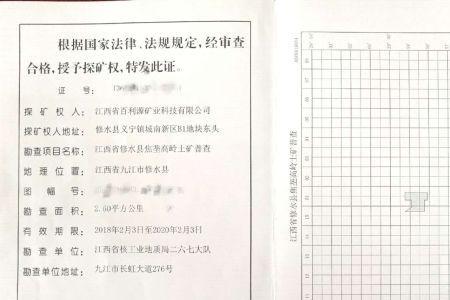 根据国家法律、法规规定，经审查
合格，授予探矿权，特发此证。
证 号：
探 矿 权 人： 江西省百利源矿业科技有限公司
探矿权人地址： 修水县义宁镇城南新区B1地块东头
勘查项目名称： 江西省修水县焦垄高岭土矿普查
地 理 位 置： 江西省九江市修水县
图 幅 号：
勘 查 面 积： 2.60平方公里
有 效 期 限： 2018年2月3日至2020年2月3日
勘 查 单 位： 江西省核工业地质局二六七大队
勘查单位地址： 九江市长虹大道276号
江西省修水县焦垄高岭土矿普查